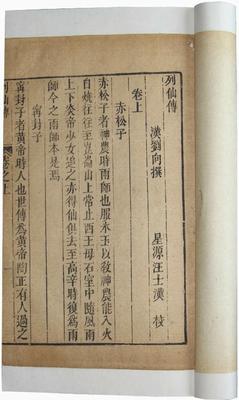 列仙傳
漢劉向撰　星源汪士漢　校
卷上
赤松子
赤松子者神農時雨師也服水玉以教神農能入火
自燒往往至崑崙山上常止西王母石室中隨風雨
上下炎帝少女追之亦得仙俱去至高辛時復為雨
師今之雨師本是焉
甯封子
甯封子者黃帝時人也世傳為黃帝陶正有人過之
列仙傳　卷之上